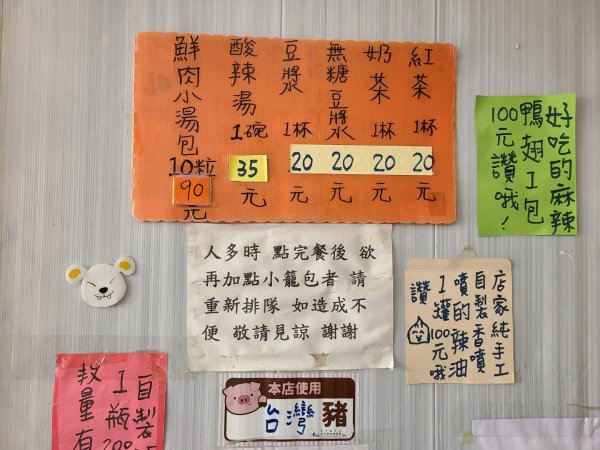 紅茶 1杯 20元
奶茶 1杯 20元
無糖豆漿 1杯 20元
豆漿 1杯 20元
酸辣湯 1碗 35元
鮮肉小湯包 10粒 90元
好吃的麻辣
鴨翅1包
100元讚哦！
人多時 點完餐後 欲
再加點小籠包者 請
重新排隊 如造成不
便 敬請見諒 謝謝
店家純手工
自製香噴
噴的辣油
1罐100元哦
讚
自製
1瓶200
數量有
本店使用
台灣豬